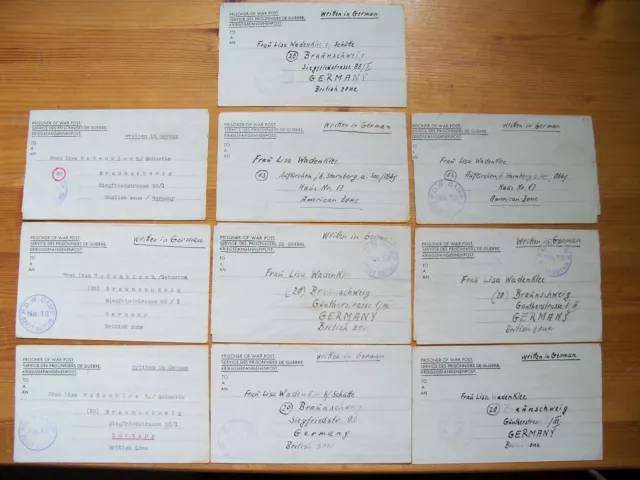 PRISONER OF WAR POST.
SERVICE DES PRISONNIERS DE GUERRE.
KRIEGSGEFANGENENPOST.
Written in German
TO
A
AN
Fraü Lisa Wadenklee b/ Schütte
(20) Braünschweig
Siegfriedstrasse 85/I
GERMANY
British zone
PRISONER OF WAR POST.
SERVICE DES PRISONNIERS DE GUERRE.
KRIEGSGEFANGENENPOST.
Written in German
TO
A
AN
Frau Lisa Wadenklee b/
Braunschweig
Siegfriedstrasse 85/I
English zone / Germany
PRISONER OF WAR POST.
SERVICE DES PRISONNIERS DE GUERRE.
KRIEGSGEFANGENENPOST.
Written in German
TO
A
AN
Fraü Lisa Wadenklee
(13) Aüfkirchen /b. Starnberg a. See /Obby
Haüs Nr. 13
American Zone
PRISONER OF WAR POST.
SERVICE DES PRISONNIERS DE GUERRE.
KRIEGSGEFANGENENPOST.
Written in German
TO
A
AN
Fraü Lisa Wadenklee
(13) Aüfkirchen /b. Starnberg a. See, Obby
Haüs Nr. 13
American Zone
P.O.W. CAMP
PRISONER OF WAR POST.
SERVICE DES PRISONNIERS DE GUERRE.
KRIEGSGEFANGENENPOST.
Written in German
TO
A
AN
Frau Lisa Wadenklee b./Schuette
(20) Braunschweig
Siegfriedstrasse 85 / I
Germany
British zone
P.O.W. CAMP
No. 13
PRISONER OF WAR POST.
SERVICE DES PRISONNIERS DE GUERRE.
KRIEGSGEFANGENENPOST.
Written in German
TO
A
AN
Fraü Lisa Wadenklee
(20) Braünschweig
Güntherstrasse
GERMANY
British zone
PRISONER OF WAR POST.
SERVICE DES PRISONNIERS DE GUERRE.
KRIEGSGEFANGENENPOST.
Written in German
TO
A
AN
Fraü Lisa Wadenklee
(20) Braünschweig
Güntherstrasse
GERMANY
British zone
PRISONER OF WAR POST.
SERVICE DES PRISONNIERS DE GUERRE.
KRIEGSGEFANGENENPOST.
Written in German
TO
A
AN
Frau Lisa Wadenklee b./
(20) Braunschweig
Siegfriedstrasse 85/I
Germany
British zone
PRISONER OF WAR POST.
SERVICE DES PRISONNIERS DE GUERRE.
KRIEGSGEFANGENENPOST.
Written in German
TO
A
AN
Fraü Lisa Wadenklee b/ Schütte
(20) Braünschweig
Siegfriedstr. 85
Germany
British zone
PRISONER OF WAR POST.
SERVICE DES PRISONNIERS DE GUERRE.
KRIEGSGEFANGENENPOST.
Written in German
TO
A
AN
Fraü Lisa Wadenklee
(20) Braünschweig
Güntherstrasse /III
GERMANY
British zone